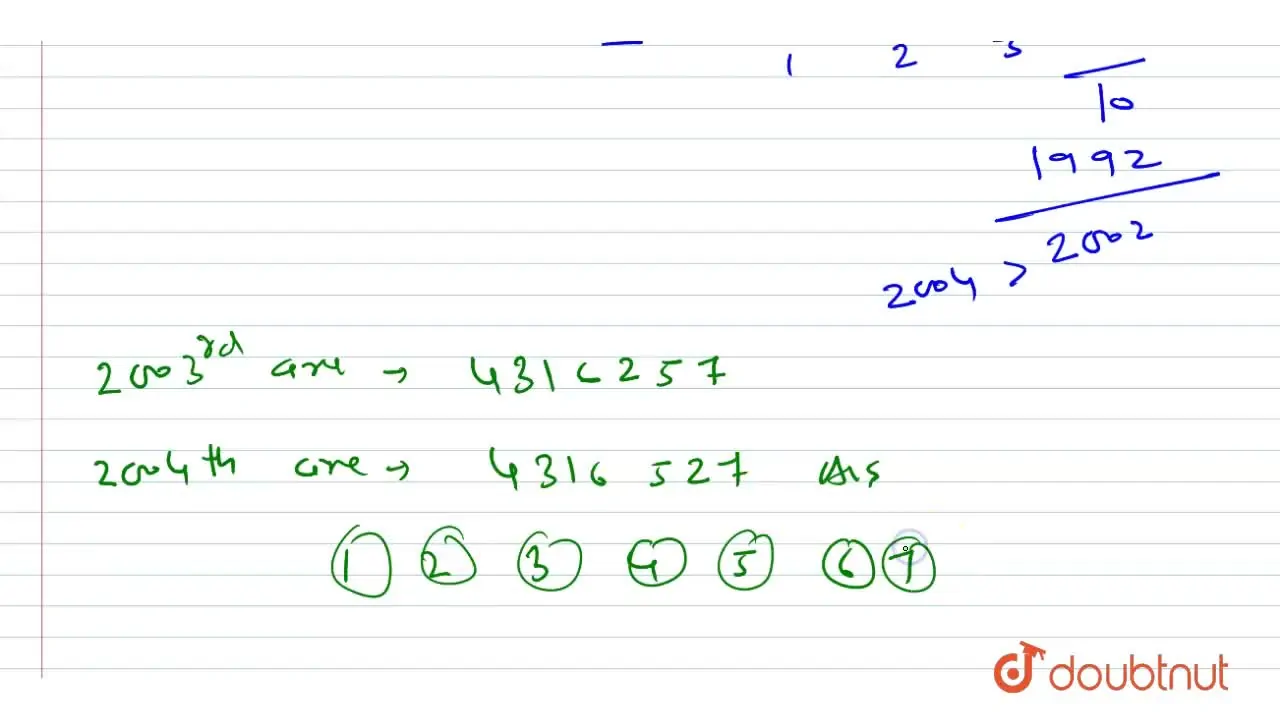 1 2 3
10
1992
2002
2004 >
2003rd are → 4316257
2004th are → 4316 527 Ans
1 2 3 4 5 6 7
doubtnut